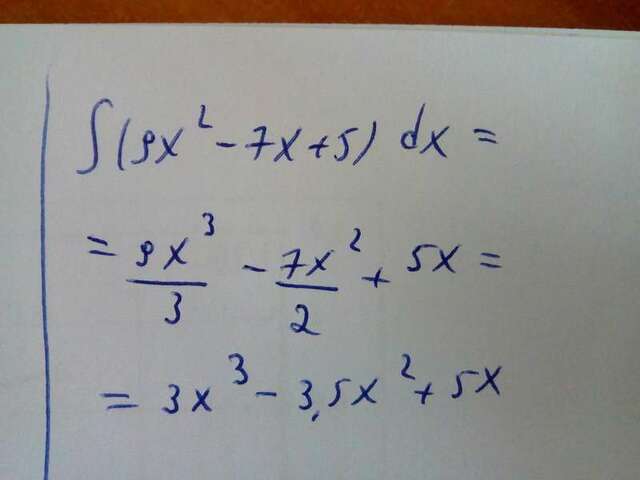 ∫(9x² - 7x + 5) dx =
= 9x³/3 - 7x²/2 + 5x =
= 3x³ - 3,5x² + 5x